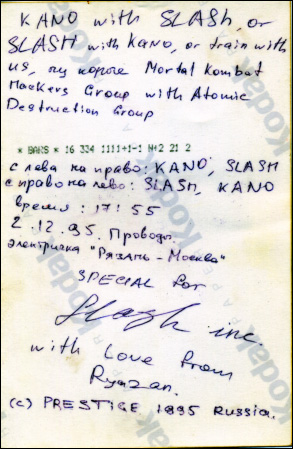 KANO with SLASH, or
SLASH with KANO, or train with
us, ну короче Mortal Kombat
Hackers Group with Atomic
Destruction Group
* BAKS * 16 334 1111+1-1 N+2 21 2
с лева на право: KANO, SLASH
справо на лево: SLASH, KANO
время: 17:55
2.12.95. Проводы.
электричка "Рязань - Москва"
SPECIAL for
Slash inc.
with Love from
Ryazan.
(c) PRESTIGE 1995 Russia.
Kodak
Kodak
Kodak
Kodak